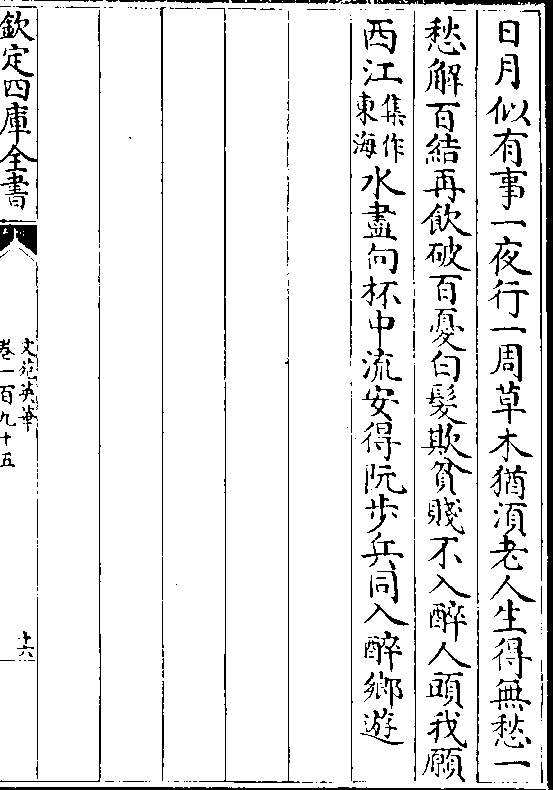 日月似有事一夜行一周草木猶湏老人生得無愁一
愁解百結再飲破百憂白髮欺貧賤不入醉人頭我願
西江集作東海水盡向杯中流安得阮步兵同入醉鄉遊
欽定四庫全書
文苑英華
卷一百九十五
十六